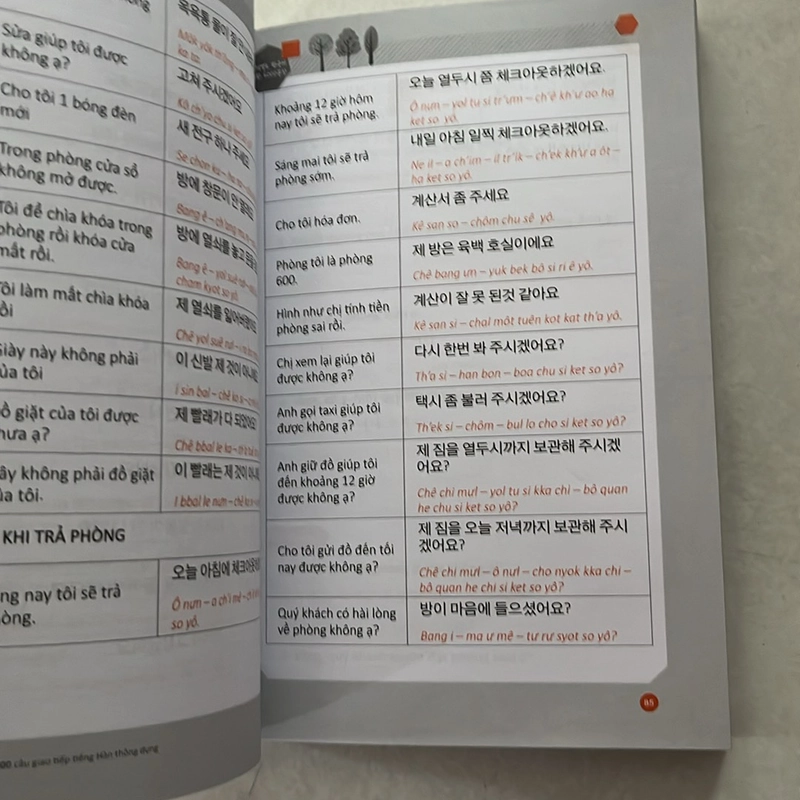 Sửa giúp tôi được
không ạ?
고쳐 주시겠어요
Cho tôi 1 bóng đèn
mới
새 전구 하나 주세요
Trong phòng cửa sổ
không mở được.
방에 창문이 안
Tôi để chìa khóa trong
phòng rồi khóa cửa
mất rồi.
방에 열쇠를 놓고
Tôi làm mất chìa khóa
rồi
제 열쇠를 잃어버렸어요
Giày này không phải
của tôi
이 신발 제 것이 아니에요
đồ giặt của tôi được
chưa ạ?
제 빨래가 다 되었어요
Chê bbal le ka –
Đây không phải đồ giặt
của tôi.
이 빨래는 제 것이
I bbal le nưn – chê
KHI TRẢ PHÒNG
ng nay tôi sẽ trả
òng.
오늘 아침에 체크아웃
Ô nưn – a ch'i mê –
so yô.
00 câu giao tiếp tiếng Hàn thông dụng
Khoảng 12 giờ hôm
nay tôi sẽ trả phòng.
오늘 열두시 쯤 체크아웃하겠어요.
Ô nưn – yol tu si tr'ưm – ch'ê kh'ư ao ha
ket so yô.
Sáng mai tôi sẽ trả
phòng sớm.
내일 아침 일찍 체크아웃하겠어요.
Ne il – a ch'im – il tr'ik – ch'ek kh'ư a ôt –
ha ket so yô.
Cho tôi hóa đơn.
계산서 좀 주세요
Kê san so – chôm chu sê yô.
Phòng tôi là phòng
600.
제 방은 육백 호실이에요
Chê bang ưn – yuk bek hô si ri ê yô.
Hình như chị tính tiền
phòng sai rồi.
계산이 잘 못 된것 같아요
Kê san si – chal môt tuên kot kat th'a yô.
Chị xem lại giúp tôi
được không ạ?
다시 한번 봐 주시겠어요?
Th'a si – han bon – boa chu si ket so yô?
Anh gọi taxi giúp tôi
được không ạ?
택시 좀 불러 주시겠어요?
Th'ek si – chôm – bul lo cho si ket so yô?
Anh giữ đồ giúp tôi
đến khoảng 12 giờ
được không ạ?
제 짐을 열두시까지 보관해 주시겠
어요?
Chê chi mưl – yol tu si kka chi – bô quan
he chu si ket so yô?
Cho tôi gửi đồ đến tối
nay được không ạ?
제 짐을 오늘 저녁까지 보관해 주시
겠어요?
Chê chi mưl – ô nưl – cho nyok kka chi –
bô quan he chi si ket so yô?
Quý khách có hài lòng
về phòng không ạ?
방이 마음에 들으셨어요?
Bang i – ma ư mê – tư rư syot so yô?
85